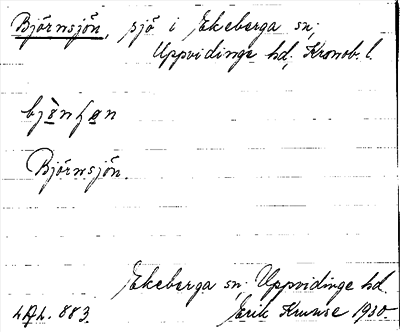 Björnsjön, sjö i Ekeberga sn;
Uppvidinge hd; Kronob. l.
Björnsjön.
Ekeberga sn; Uppvidinge hd.
883. Erik Kruuse 1930.